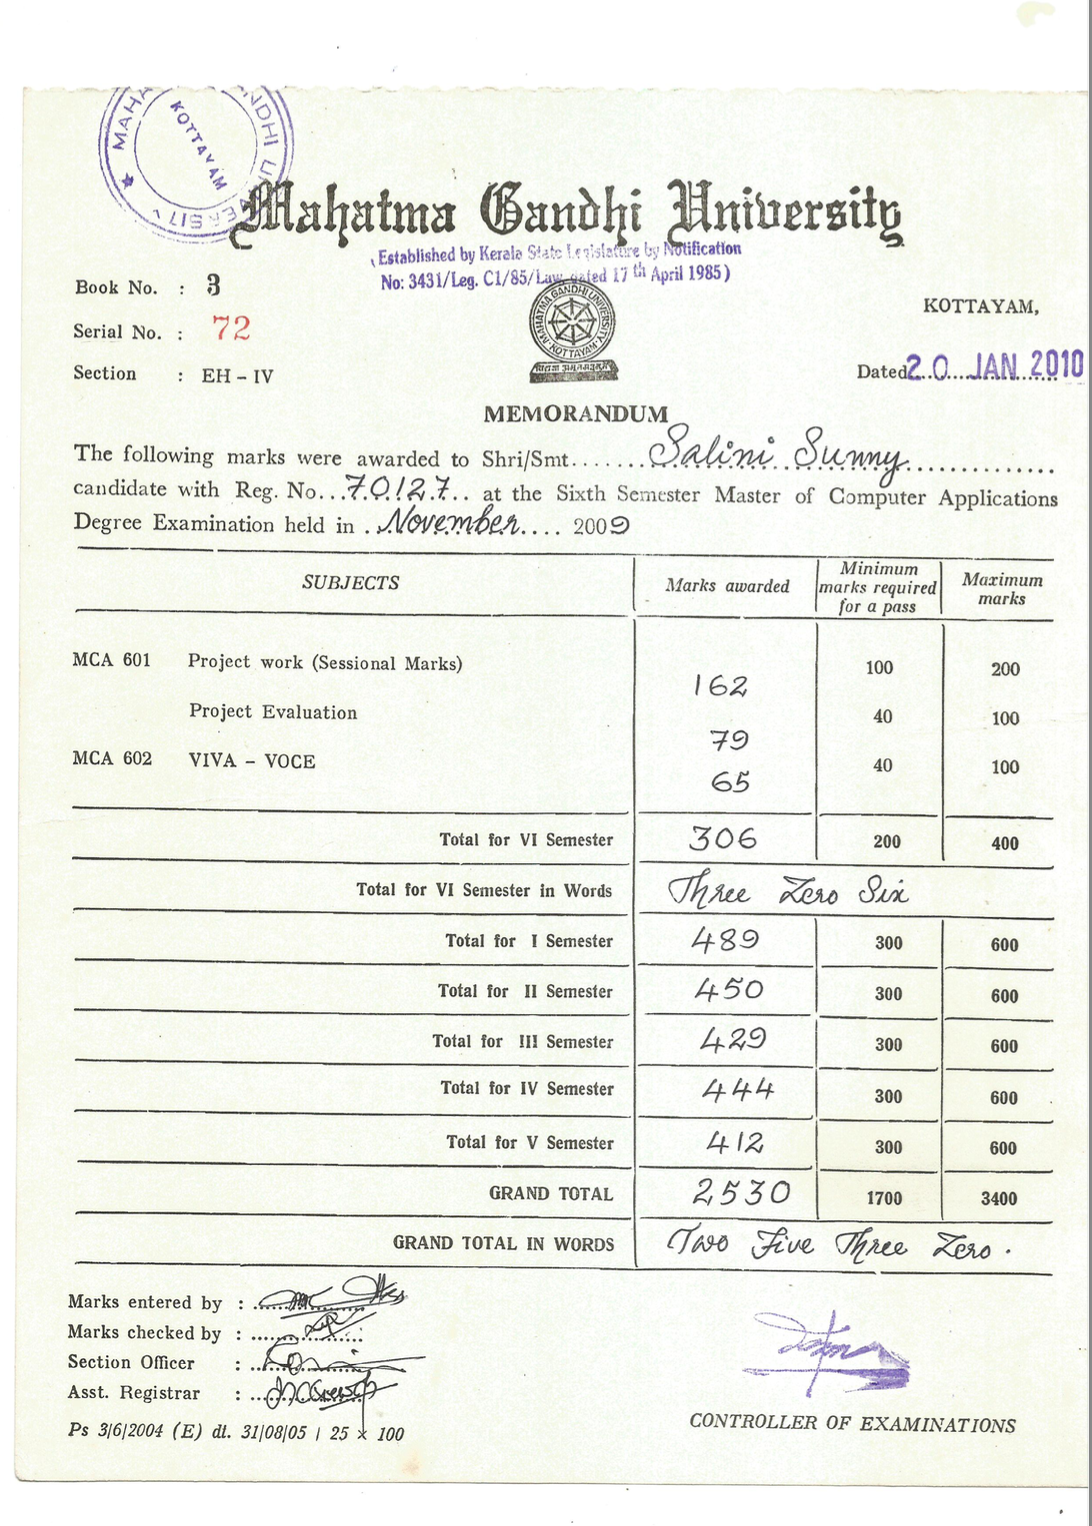 MAHATMA GANDHI UNIVERSITY
KOTTAYAM
Mahatma Gandhi University
(Established by Kerala State Legislature by Notification
No: 3431/Leg. C1/85/Law dated 17th April 1985)
Book No. : 3
MAHATMA GANDHI UNIVERSITY
KOTTAYAM
KOTTAYAM,
Serial No. : 72
Section : EH – IV
Dated 20 JAN 2010
MEMORANDUM
The following marks were awarded to Shri/Smt....... Salini Sunny..............
candidate with Reg. No...70127.. at the Sixth Semester Master of Computer Applications
Degree Examination held in ..November.... 2009
SUBJECTS Marks awarded Minimum marks required for a pass Maximum marks
MCA 601 Project work (Sessional Marks) 162 100 200
Project Evaluation 79 40 100
MCA 602 VIVA – VOCE 65 40 100
Total for VI Semester 306 200 400
Total for VI Semester in Words Three Zero Six
Total for I Semester 489 300 600
Total for II Semester 450 300 600
Total for III Semester 429 300 600
Total for IV Semester 444 300 600
Total for V Semester 412 300 600
GRAND TOTAL 2530 1700 3400
GRAND TOTAL IN WORDS Two Five Three Zero.
Marks entered by :
Marks checked by :
Section Officer :
Asst. Registrar :
Ps 3/6/2004 (E) dt. 31/08/05 / 25 × 100
CONTROLLER OF EXAMINATIONS